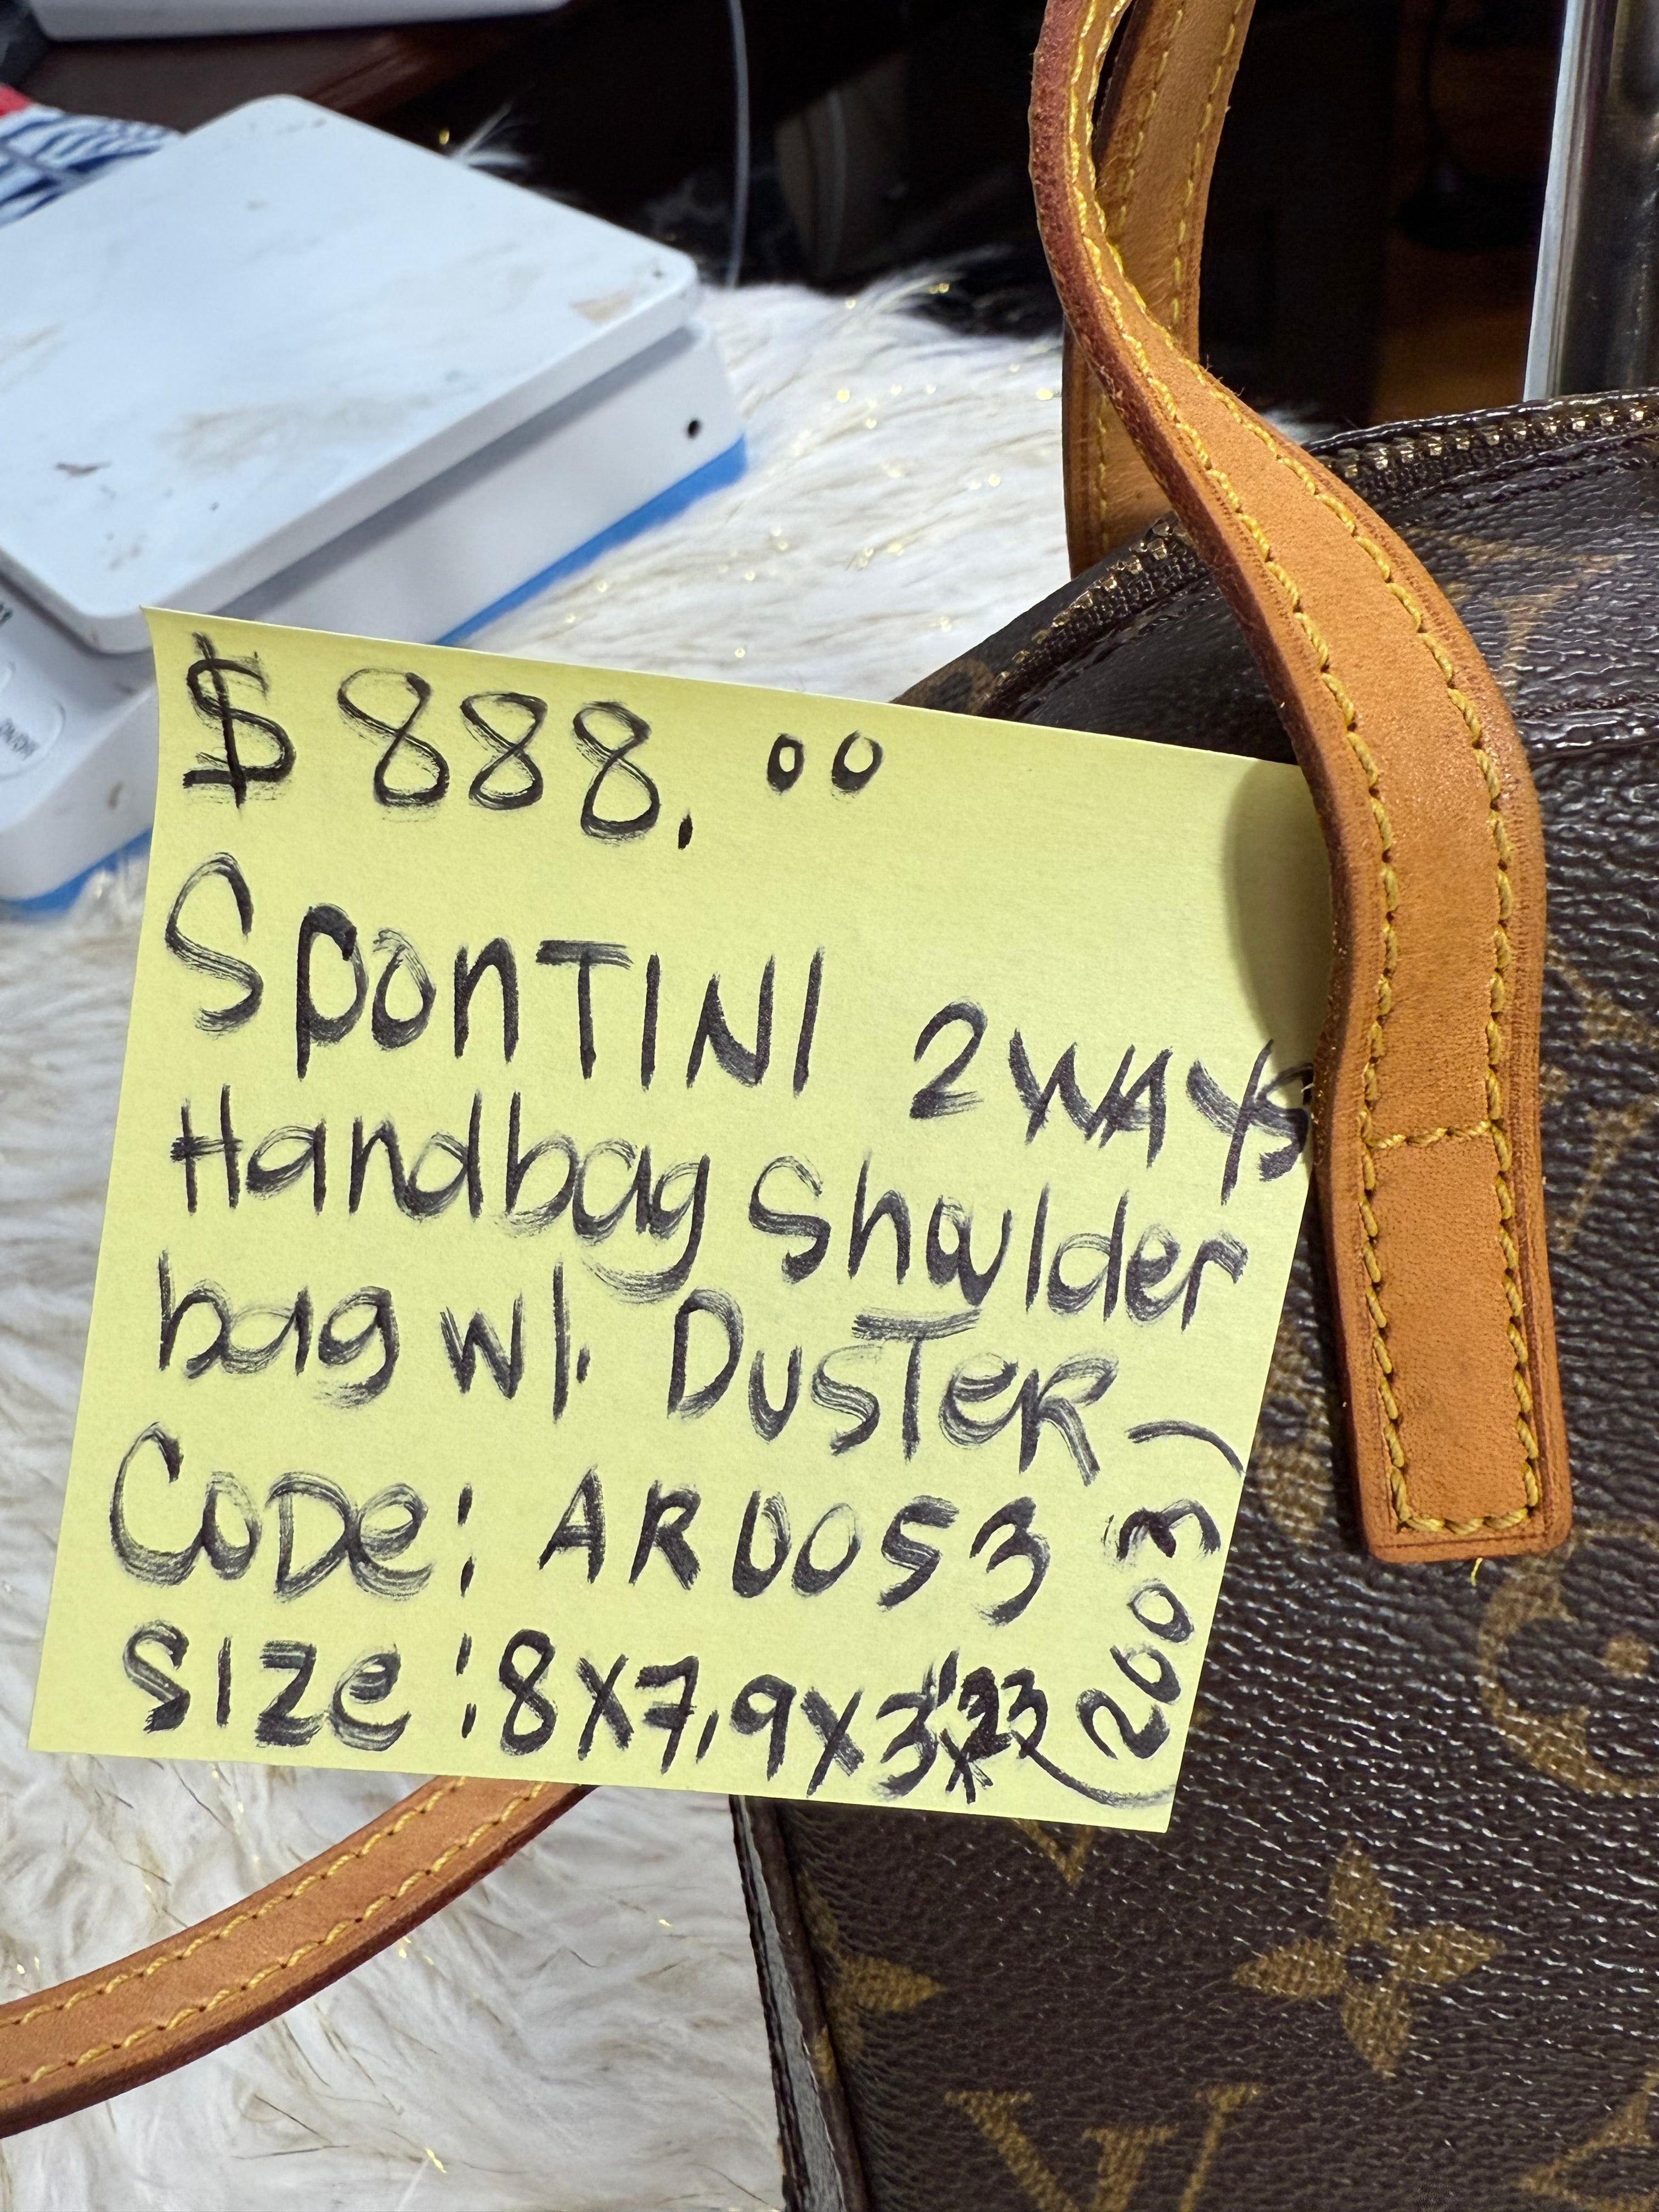 $ 888.00
SponTINI 2WAYS
Handbag Shoulder
bag w/. DusTeR
CoDe: AR0053
SIZe: 8X7.9X3"x23
(2003)
ON/OFF
LV